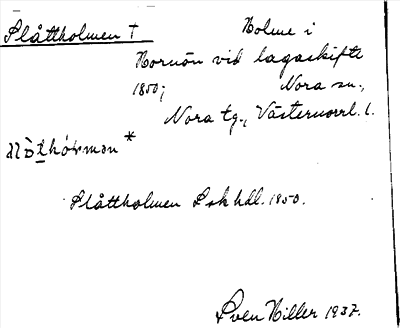 Slåttholmen † Holme i
Hornön vid lagaskifte
1850; Nora sn.,
Nora tg., Västernorrl. l.
Slåttholmen Lsk hdl. 1850.
Sven Hiller 1937.